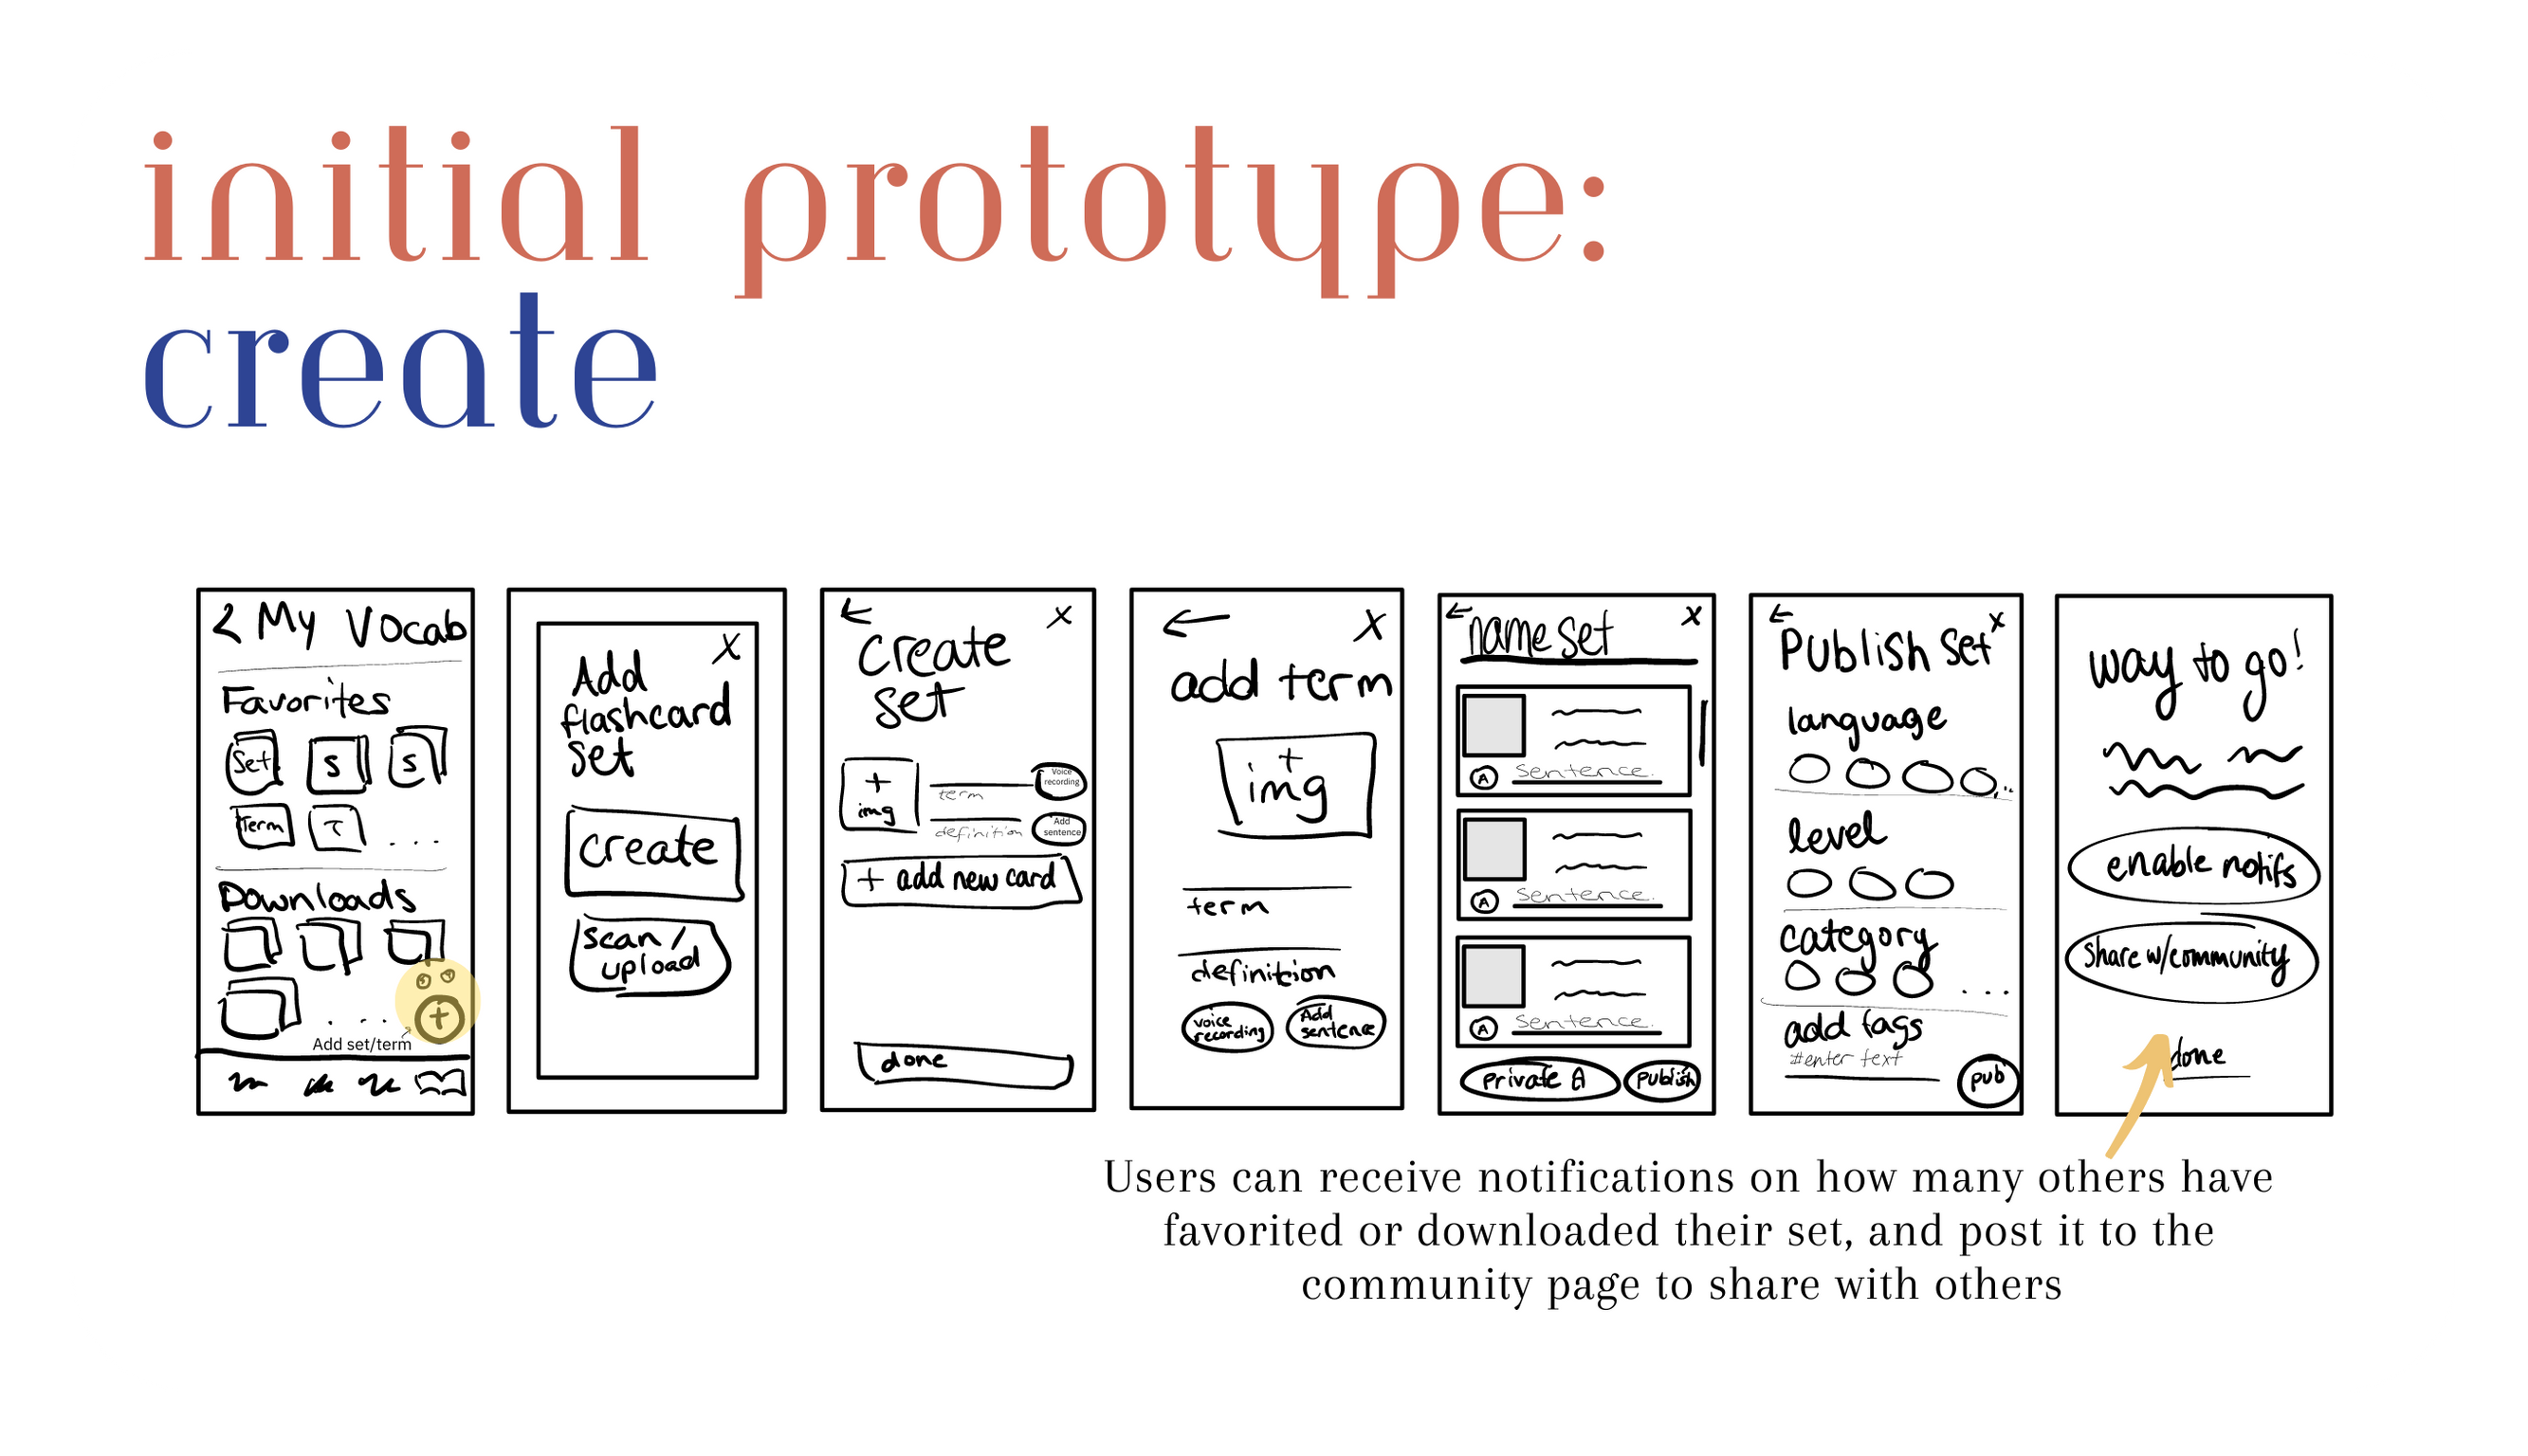 initial prototype:
create
< My Vocab
Favorites
Set S S
Term T ...
Downloads
...
Add set/term
+
X
Add
flashcard
set
create
scan/
upload
X
create
set
+
img
term
Voice
recording
definition
Add
sentence
+ add new card
done
X
add term
+
img
term
definition
voice
recording
Add
sentence
name set X
A sentence.
A sentence.
A sentence.
private
publish
X
Publish set
language
...
level
category
...
add tags
#enter text
pub
way to go!
enable notifs
share w/community
done
Users can receive notifications on how many others have
favorited or downloaded their set, and post it to the
community page to share with others